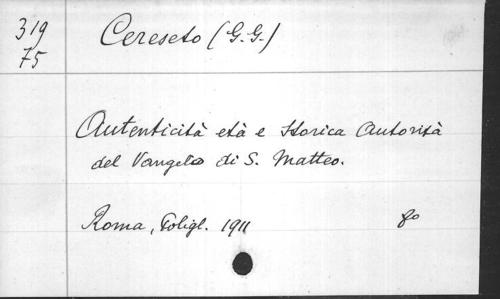 319
75
Cereseto (G.G.)
Autenticità età e Storica Autorità
del Vangelo di S. Matteo.
Roma, Poligl. 1911 8o